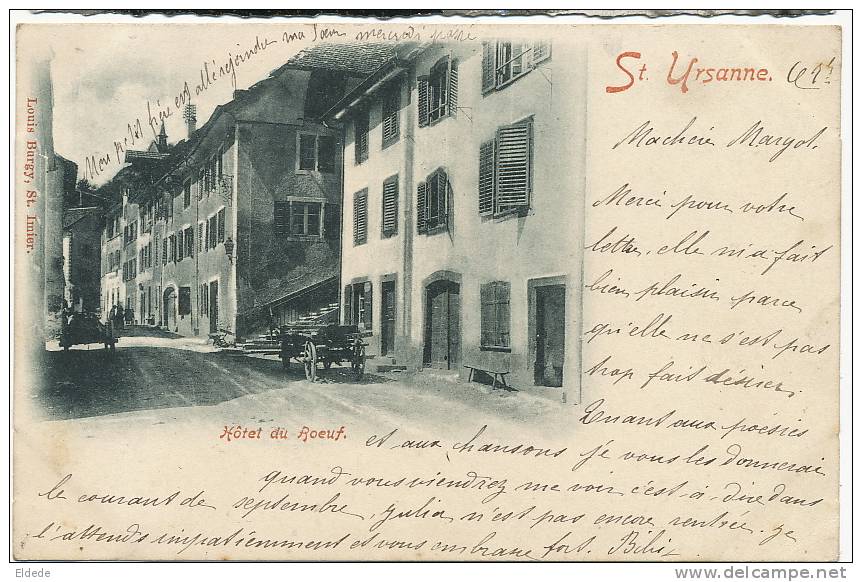 Mon petit frère est allé rejoindre ma Sœur mercredi passé
St. Ursanne.
Louis Burgy, St. Imier.
Ma chérie Margot.
Merci pour votre
lettre, elle m'a fait
bien plaisir parce
qu'elle ne s'est pas
trop fait désirer.
Hôtel du Boeuf.
Quant aux poésies
et aux chansons je vous les donnerai
quand vous viendrez me voir c'est-à-dire dans
le courant de septembre, Julia n'est pas encore rentrée. je
l'attends impatiemment et vous embrasse fort. Bibi
Eldede
www.delcampe.net